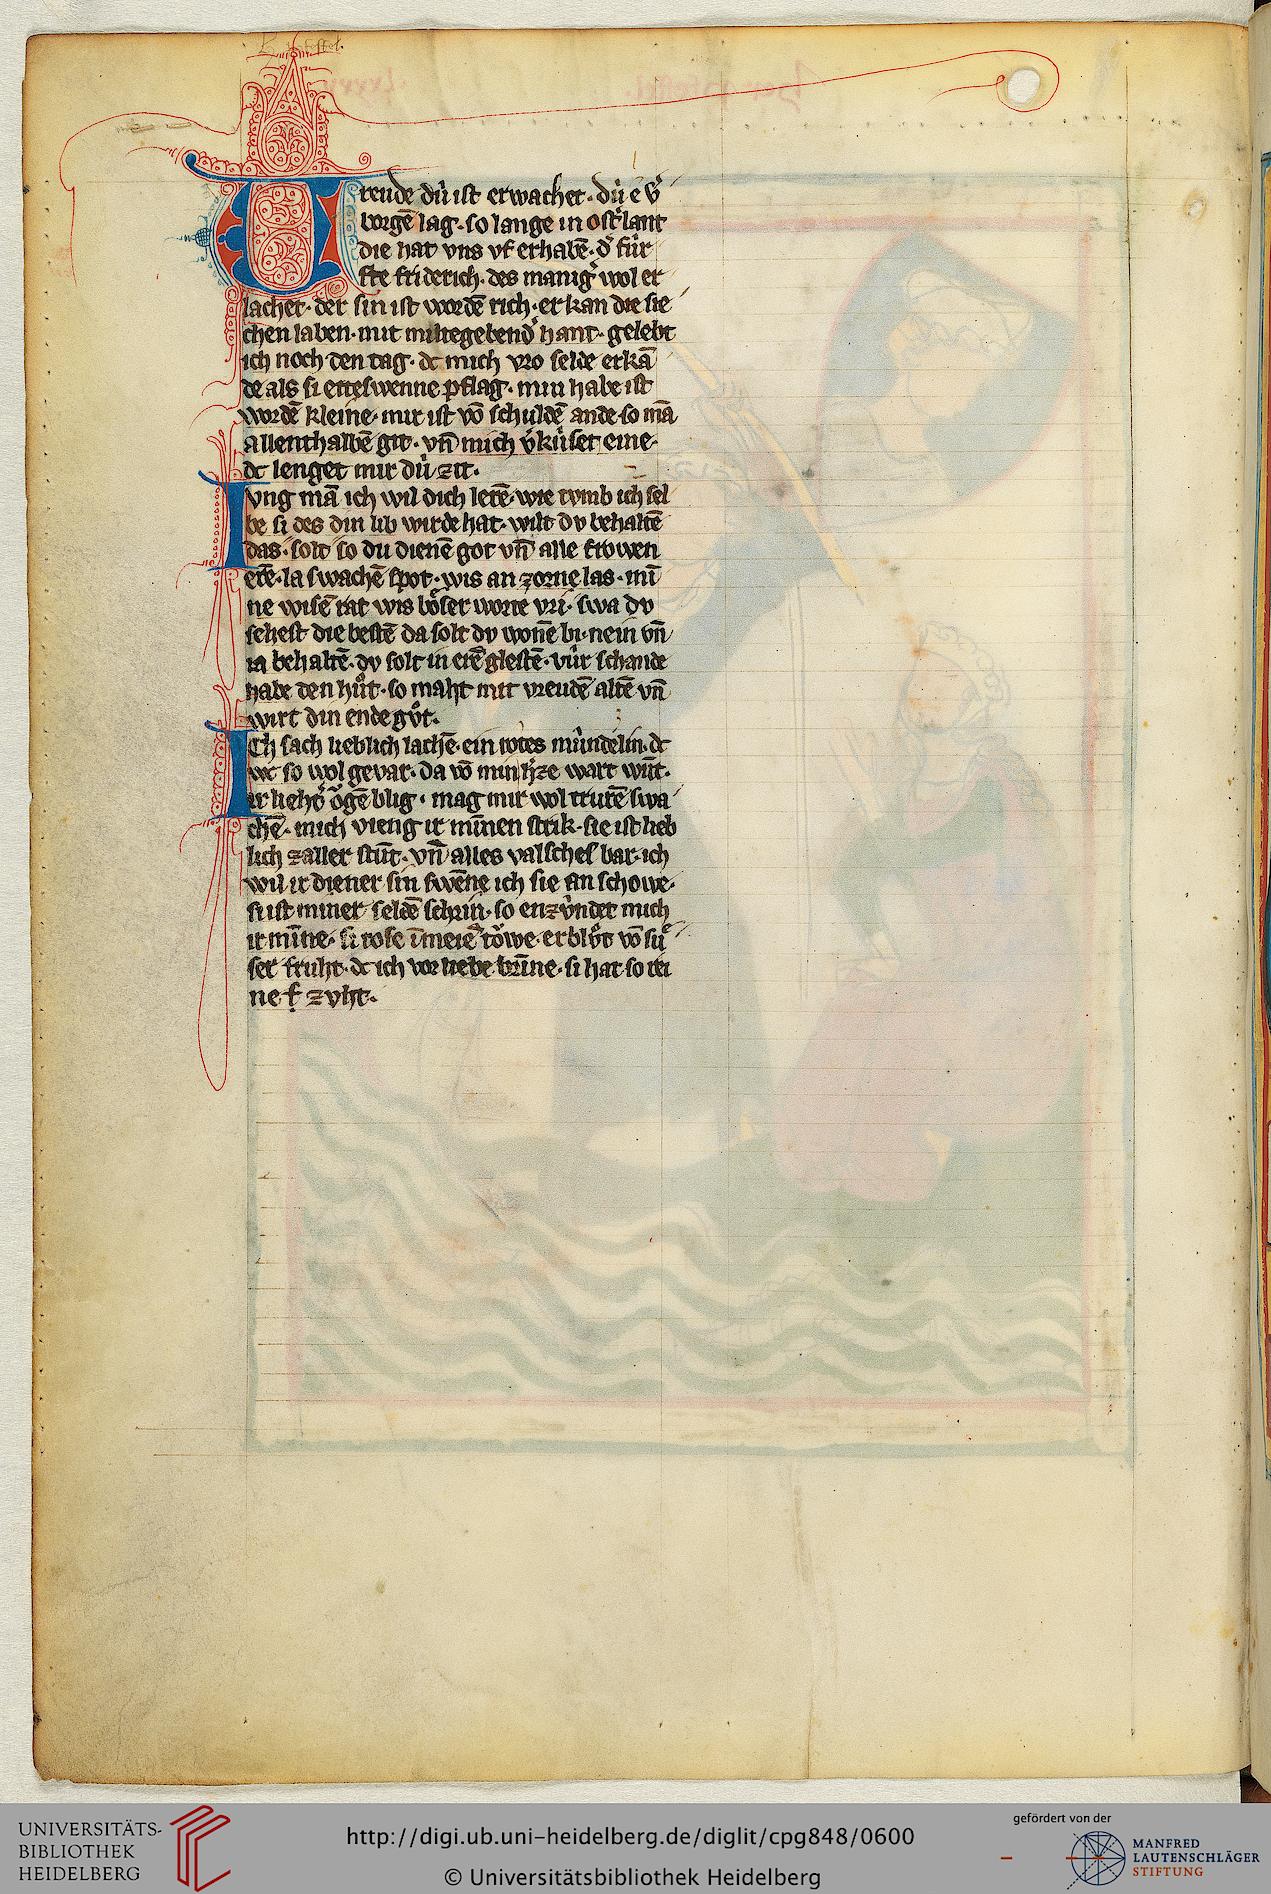 Vreude dv̍ ist erwachet· dv̍ e v̾
borgē lag· so lange in ost̾lant
die hat vns vf erhabē· d̾ fúr
ste friderich· des manig̾ wol er
lachet· der sin ist wordē rich· er kan die sie
chen laben· mit miltegebend̾ hant· gelebt
ich noch den tag· dc mich vro selde erkā
de als si etteswenne pflag· min habe ist
wordē kleine· mir ist vō schuldē ande· so mā
allenthalbē git· vn̄ mich v̾kúset eine·
dc lenget mir dv̍ zit·
Ivng mā ich wil dich lerē· wie tvmb ich sel
be si des din lib wirde hat· wilt dv behaltē
das· solt so du dienē got vn̄ alle frowen
erē· la swachē spot· wis an zorne las· mī
ne wisē rat wis bo̍ser worte vri· swa dv
sehest die bestē da solt dv wonē bi· nein vn̄
ia behaltē· dv solt in erē glestē· vúr schande
habe den hu̍t· so maht mit vreudē altē vn̄
wirt din ende gv̊t·
Ich sach lieblich lachē· ein rotes mu̍ndelin· dc
wc so wol gevar· da vō min h̾ze wart wūt·
ir lieht̾ ǒgē blig· mag mir wol trurē swa
chē· mich vieng ir mīnen strik· sie ist lieb
lich zaller stūt· vn̄ alles valsches bar· ich
wil ir diener sin swēne ich sie an schowe·
si ist miner seldē schrin· so enzv̍ndet mich
ir mīne· si rose īmeië towe· erblv̊t vō sú
ser fruht· dc ich vor liebe brīne· si hat so rei
ne f zvht·
UNIVERSITÄTS-
BIBLIOTHEK
HEIDELBERG
http://digi.ub.uni-heidelberg.de/diglit/cpg848/0600
© Universitätsbibliothek Heidelberg
gefördert von der
MANFRED
LAUTENSCHLÄGER
STIFTUNG